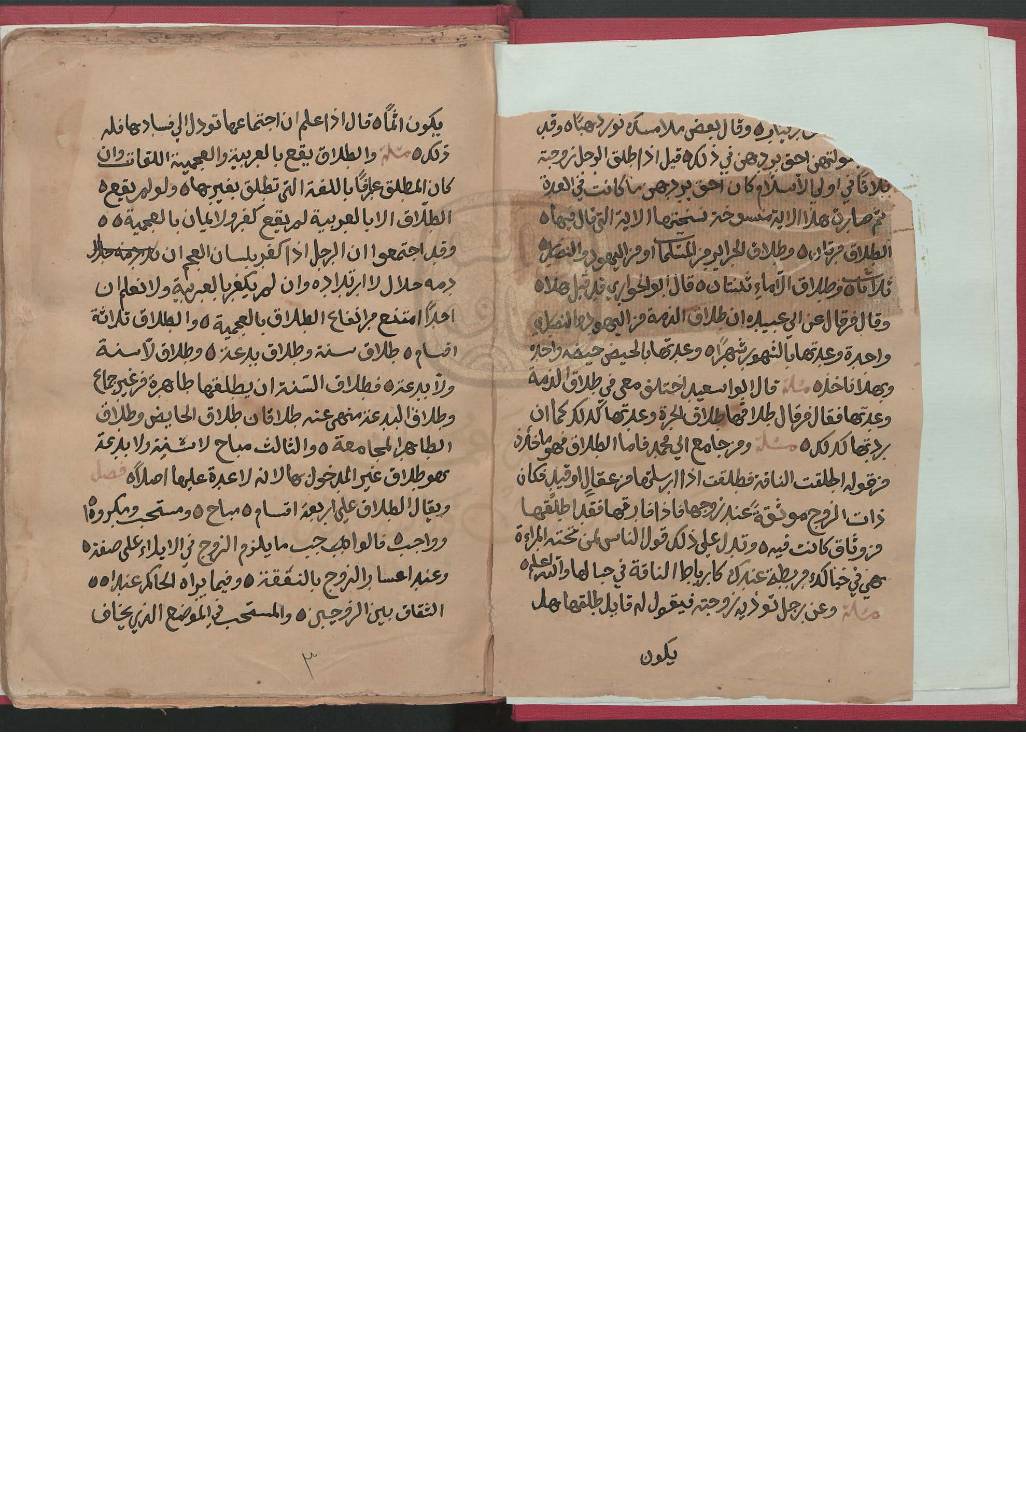 وقال بعض ملا مسكه نورد هناه وقد
بعولتهن احق بردهن في ذلكه قيل اذا طلق الرجل زوجته
ثلاثا في اولي الاسلام كان احق بردهن ما كانت في العدة
ثم صارت هذا الاية منسوخة نسختها الاية التي قال فيها ه
الطلاق مرتان ه وطلاق الحراير من المسلمات او من اليهود والنصارى
ثلاثاه وطلاق الآماء ثنتان ه قال ابو الحواري قد قيل هذاه
وقال من قال عن ابي عبيده ان طلاق الذمة من اليهود والنصارى
واحدة وعدتها بالشهور شهراه وعدتها بالحيض حيضه واحده
وبهذا ناخذه مسئلة قال ابوا سعيد اختلف معي في طلاق الذمة
وعدتها فقال من قال طلاقها طلاق الحرة وعدتها كذلك كما ان
ديتها كذلك ه مسئلة ومن جامع ابي محمد فاما الطلاق فهو ماخذه
من قوله اطلقت الناقة فطلقت اذا ارسلتها من عقال او قيد فكان
ذات الزوج موثقة عند زوجها فاذا فارقها فقد اطلقها
من وثاق كانت فيه ه وتدل علي ذلك قول الناس لمن تحته المراءة
هي في حبالك مربطة عندك كارباط الناقة في حبالها والله اعلم ه
مسئلة وعن رجل توذيه زوجته فيقول له قايل طلقها هل
يكون
يكون اثما ه قال اذا علم ان اجتماعها تودل الي فسادها فله
ذلك ه مسئلة والطلاق يقع بالعربية والعجمية اللقات وان
كان المطلق عارفا باللغة التي تطلق بغيرها ه ولو لم يقع ه
الطلاق الا بالعربية لم يقع كفر ولا ايمان بالعجمية ه ه
وقد اجتمعوا ان الرجل اذا كفر بلسان العجم ان
دمه حلال لا ارتداده وان لم يكفر بالعربية ولا نعلم ان
احدا امتنع من ايقاع الطلاق بالعجمية ه والطلاق ثلاثة
اقسام ه طلاق سنة وطلاق بدعة ه وطلاق لا سنة
ولا بدعة ه فطلاق السنة ان يطلقها طاهرة من غير جماع
وطلاق البدعة منهي عنه طلاقان طلاق الحايض وطلاق
الطاهر المجامعة ه والثالث مباح لا سنة ولا بدعة
هو طلاق غير المدخول بها لانه لا عدة عليها اصلا ه فصل
ويقال الطلاق علي اربعة اقسام ه مباح ه ومستحب ومكروه
وواجب ه فالواجب ما يلزم الزوج في الايلاء علي صفة ه
وعند اعسار الزوج بالنفقة ه وفيما يراه الحاكم عند ه ه
الشقاق بين الزوجين ه والمستحب في الموضع الذي يخاف
٣